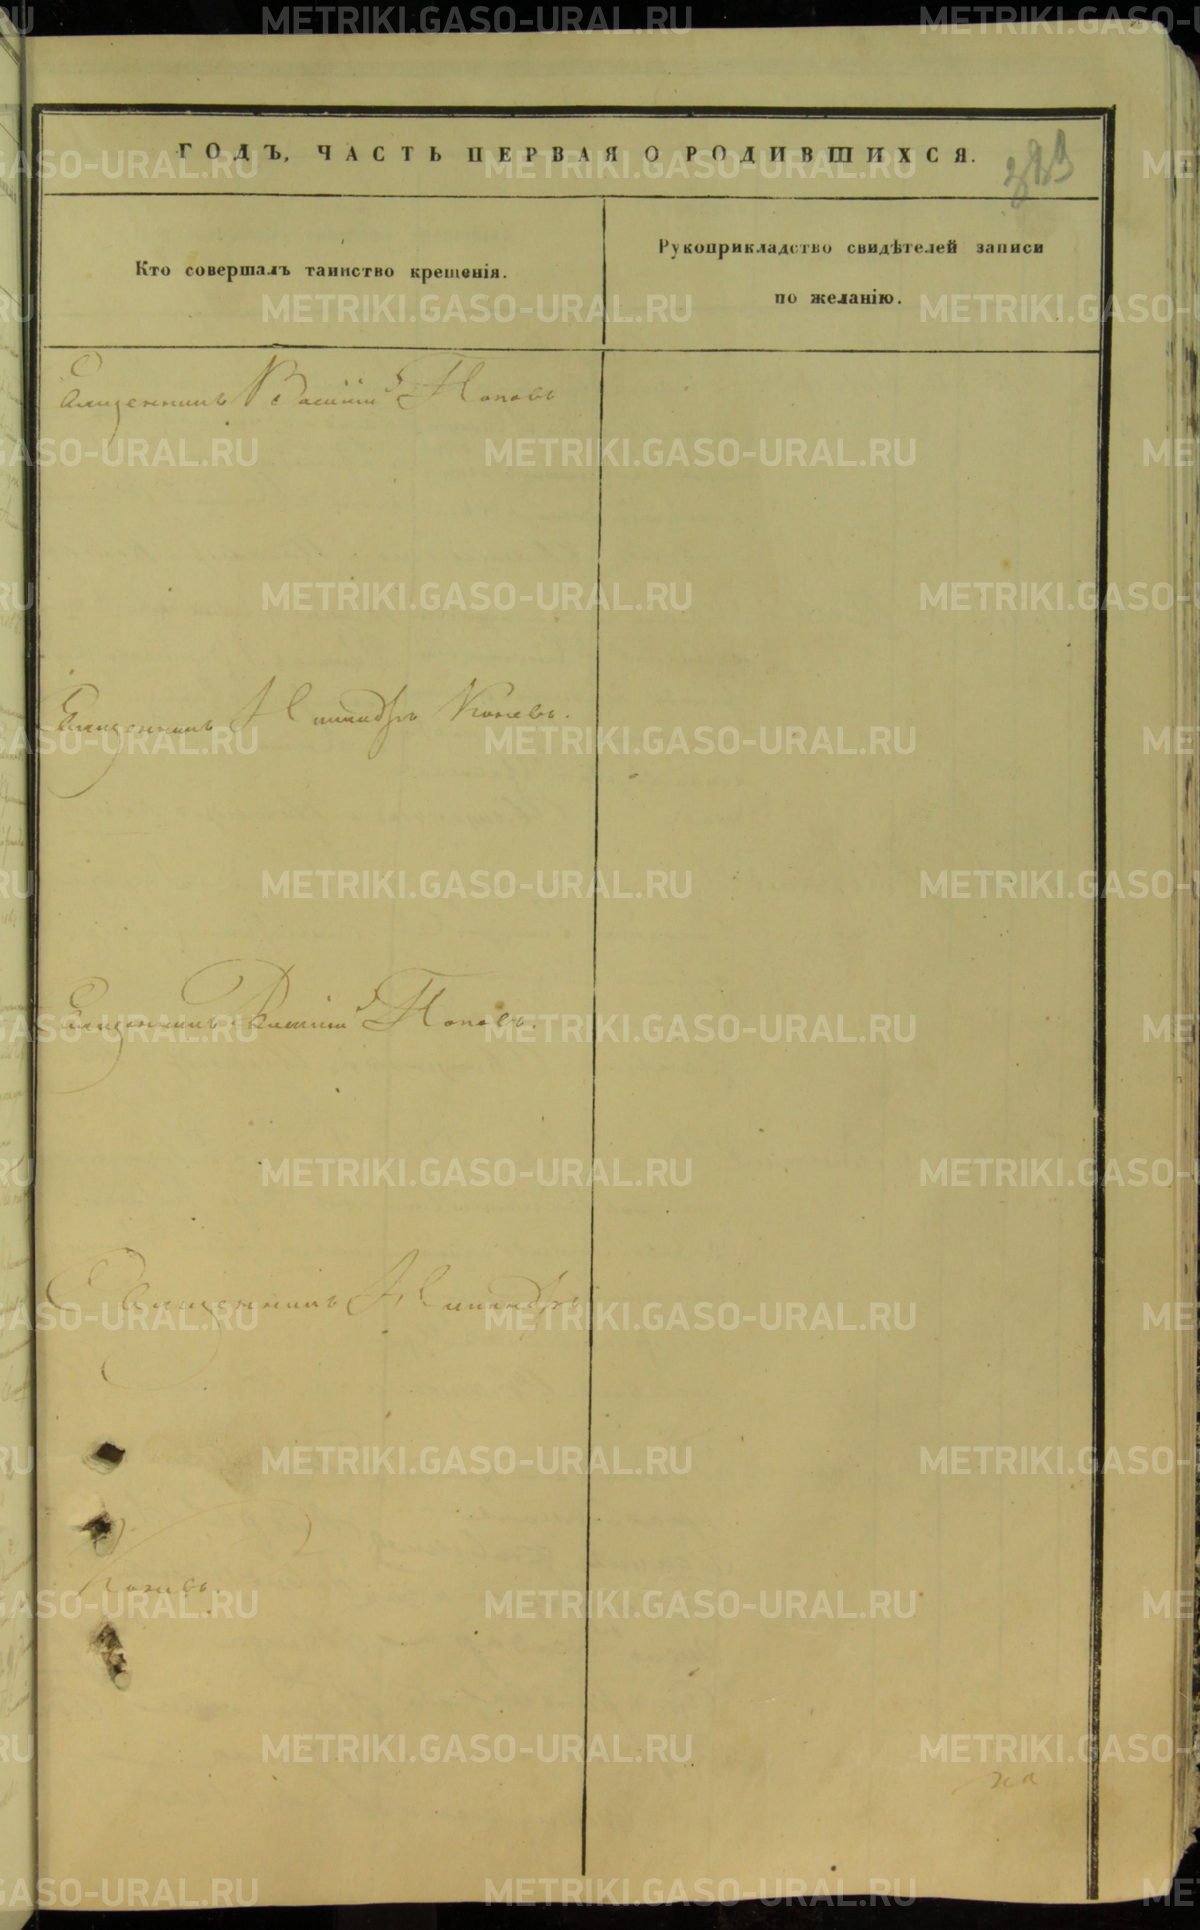 ГОДЪ, ЧАСТЬ ПЕРВАЯ О РОДИВШИХСЯ.
Кто совершалъ таинство крещенія.
Рукоприкладство свидѣтелей записи
по желанію.
Священникъ Василій Поповъ
Священникъ Поповъ.
Священникъ Василій Поповъ.
Священникъ
на
METRIKI.GASO-URAL.RU